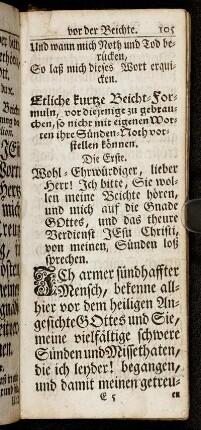 vor der Beichte. 105
Und wann mich Noth und Tod be-
rücken,
So laß mich dieses Wort erqui-
cken.
Etliche kurtze Beicht-For-
muln, vor diejenige zu gebrau-
chen, so nicht mit eigenen Wor-
ten ihre Sünden-Noth vor-
stellen können.
Die Erste.
Wohl-Ehrwürdiger, lieber
Herr! Ich bitte, Sie wol-
len meine Beichte hören,
und mich auf die Gnade
GOttes, und das theure
Verdienst JEsu Christi,
von meinen, Sünden loß
sprechen.
ICh armer sündhaffter
Mensch, bekenne all-
hier vor dem heiligen An-
gesichte GOttes und Sie,
meine vielfältige schwere
Sünden und Missethaten,
die ich leyder! begangen,
und damit meinen getreu-
E 5 en